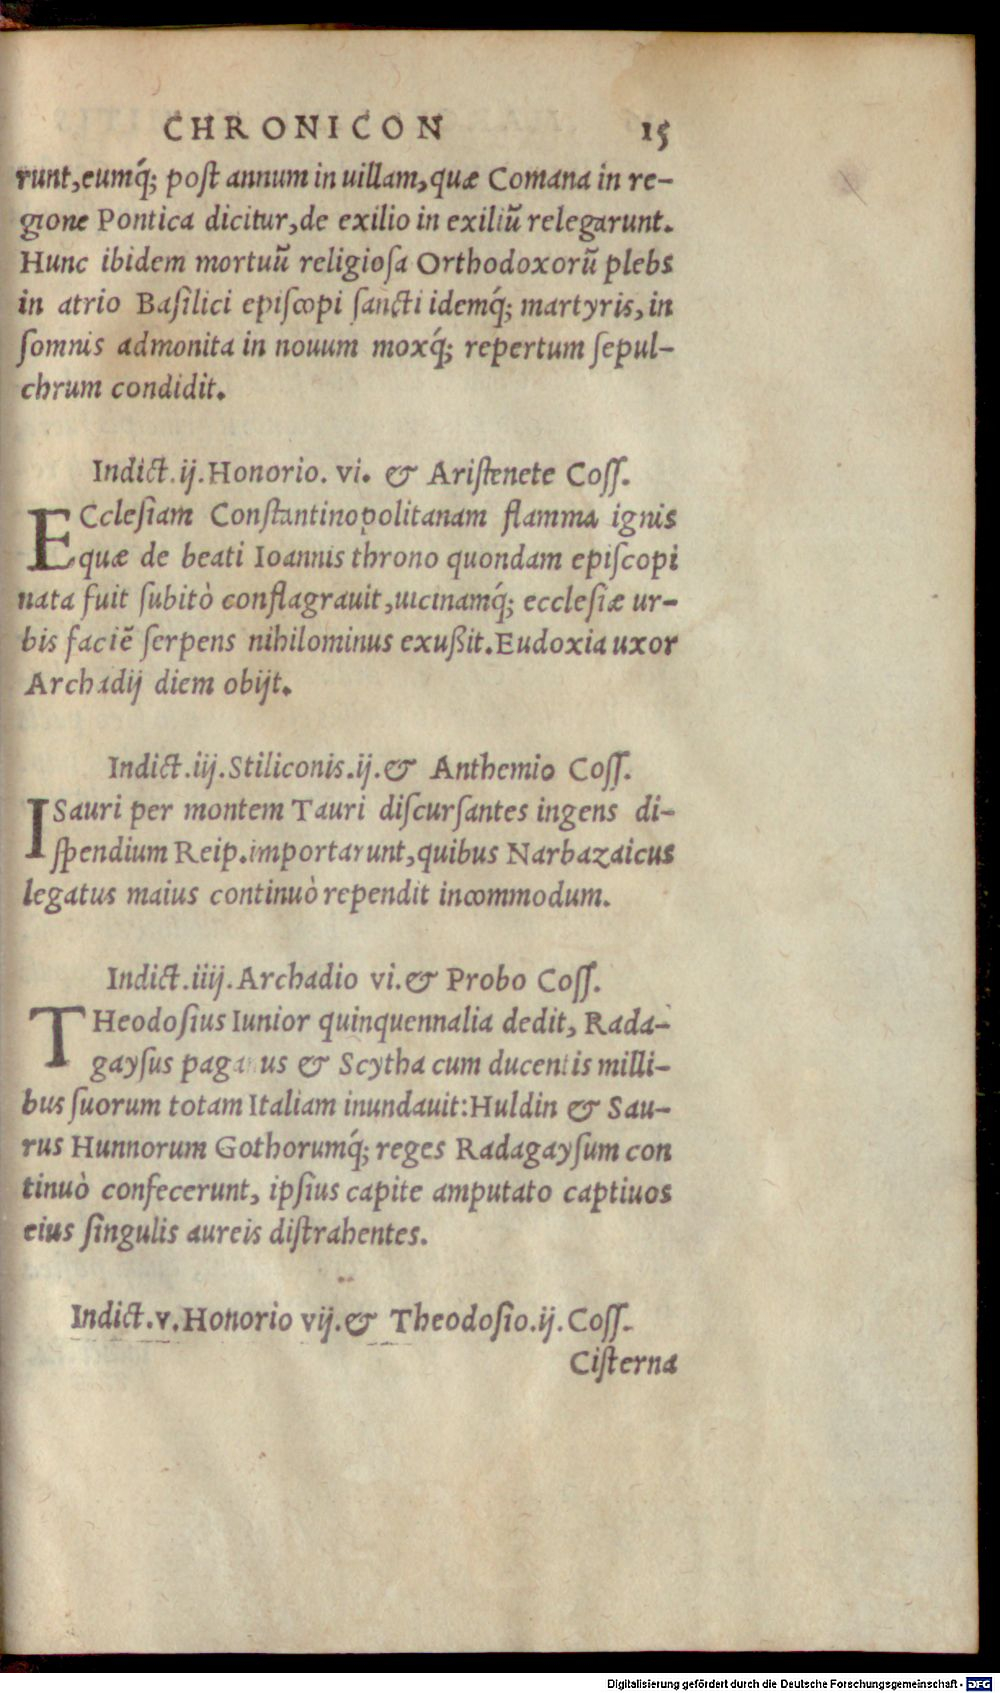 CHRONICON 15
runt, eumq́; poſt annum in uillam, quæ Comana in re-
gione Pontica dicitur, de exilio in exiliũ relegarunt.
Hunc ibidem mortuũ religioſa Orthodoxorũ plebs
in atrio Baſilici epiſcopi ſancti idemq́; martyris, in
ſomnis admonita in nouum moxq́; repertum ſepul-
chrum condidit.
Indict. ij. Honorio. vi. & Ariſtenete Coſſ.
ECcleſiam Conſtantinopolitanam flamma ignis
quæ de beati Ioannis throno quondam epiſcopi
nata fuit ſubitò conflagrauit, uicinamq́; eccleſiæ ur-
bis faciẽ ſerpens nihilominus exußit. Eudoxia uxor
Archadij diem obijt.
Indict. iij. Stiliconis. ij. & Anthemio Coſſ.
ISauri per montem Tauri diſcurſantes ingens di-
ſpendium Reip. importarunt, quibus Narbazaicus
legatus maius continuò rependit incommodum.
Indict. iiij. Archadio vi. & Probo Coſſ.
THeodoſius Iunior quinquennalia dedit, Rada-
gayſus paganus & Scytha cum ducentis milli-
bus ſuorum totam Italiam inundauit: Huldin & Sau-
rus Hunnorum Gothorumq́; reges Radagayſum con
tinuò confecerunt, ipſius capite amputato captiuos
eius ſingulis aureis diſtrahentes.
Indict. v. Honorio vij. & Theodoſio. ij. Coſſ.
Ciſterna
Digitalisierung gefördert durch die Deutsche Forschungsgemeinschaft - DFG